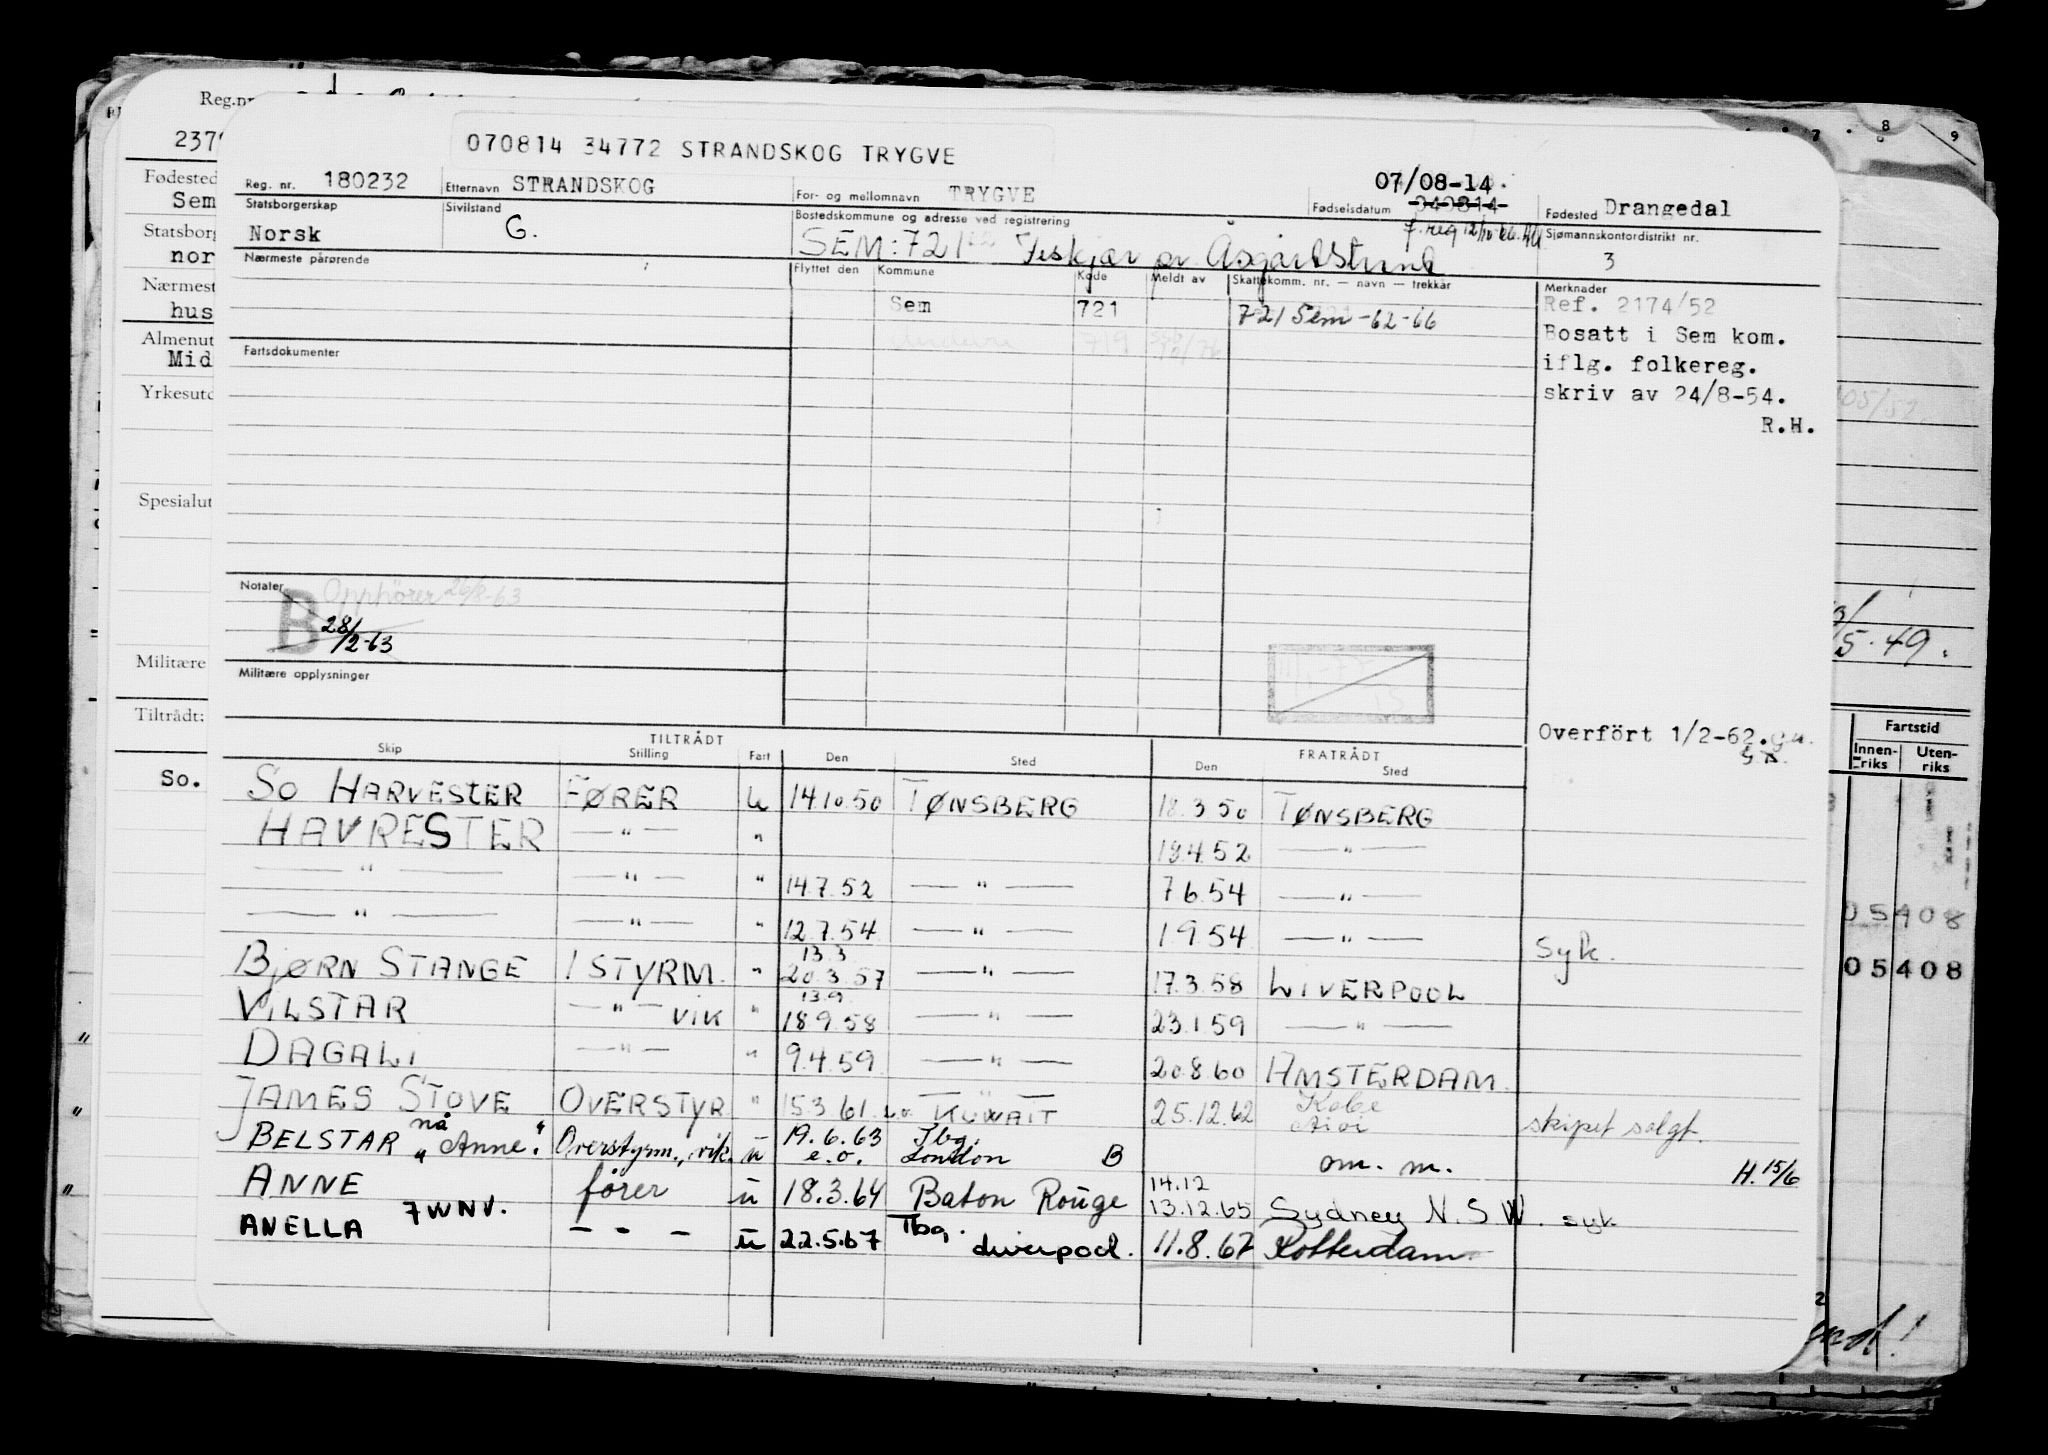 Reg.nr.
070814 34772 STRANDSKOG TRYGVE
Reg. nr. 180232 Etternavn STRANDSKOG For- og mellomnavn TRYGVE 07/08-14. Fødselsdatum 040814 Fødested Drangedal
Statsborgerskap Norsk Sivilstand G. Bostedskommune og adresse ved registrering SEM: 721 Åsgårdstrand f.reg Sjømannskontordistrikt nr. 3
Nærmeste pårørende Flyttet den Kommune Kode Meldt av Skattekomm. nr. — navn — trekkår Merknader
Sem 721 721 Sem -62-66 Ref. 2174/52
719 Bosatt i Sem kom.
Fartsdokumenter iflg. folkereg.
skriv av 24/8-54.
R.H.
Notater B Opphörer 26/8-63
28/2-63
Militære opplysninger
Overfört 1/2-62.
TILTRÅDT FRATRÅDT
Skip Stilling Fart Den Sted Den Sted
SO HARVESTER FØRER U 14.10.50 TØNSBERG 18.3.50 TØNSBERG
HAVRESTER — " — " 19.4.52 — " —
— " — — " — " 14.7.52 — " — 7.6.54 — " —
— " — — " — " 12.7.54 — " — 1.9.54 — " — Syk.
13.3
BJØRN STANGE 1 STYRM. " 20.3.57 — " — 17.3.58 LIVERPOOL
13.9
VILSTAR — " — VIK " 18.9.58 — " — 23.1.59 — " —
DAGALI — " — " 9.4.59 — " — 20.8.60 AMSTERDAM
JAMES STOVE OVERSTYR " 15.3.61 KUWAIT 25.12.62 Kobe Aioi skipet solgt.
BELSTAR nå "Anne". Overstyrm., vik. u 19.6.63 e.o. Tbg. London B om. m. H. 15/6
ANNE fører u 18.3.64 Baton Rouge 14.12 13.12.65 Sydney N.S.W. syk
ANELLA 7WNV. - - - u 22.5.67 Tbg. Liverpool. 11.8.67 Rotterdam.
237
Fødested
Sem
Statsborg
nor
Nærmest
hus
Almenut
Mid
Yrkesutd
Spesialut
Militære
Tiltrådt:
So.
7 8 9
105/52
5.49.
Fartstid
Innen-riks Uten-riks
05408
05408